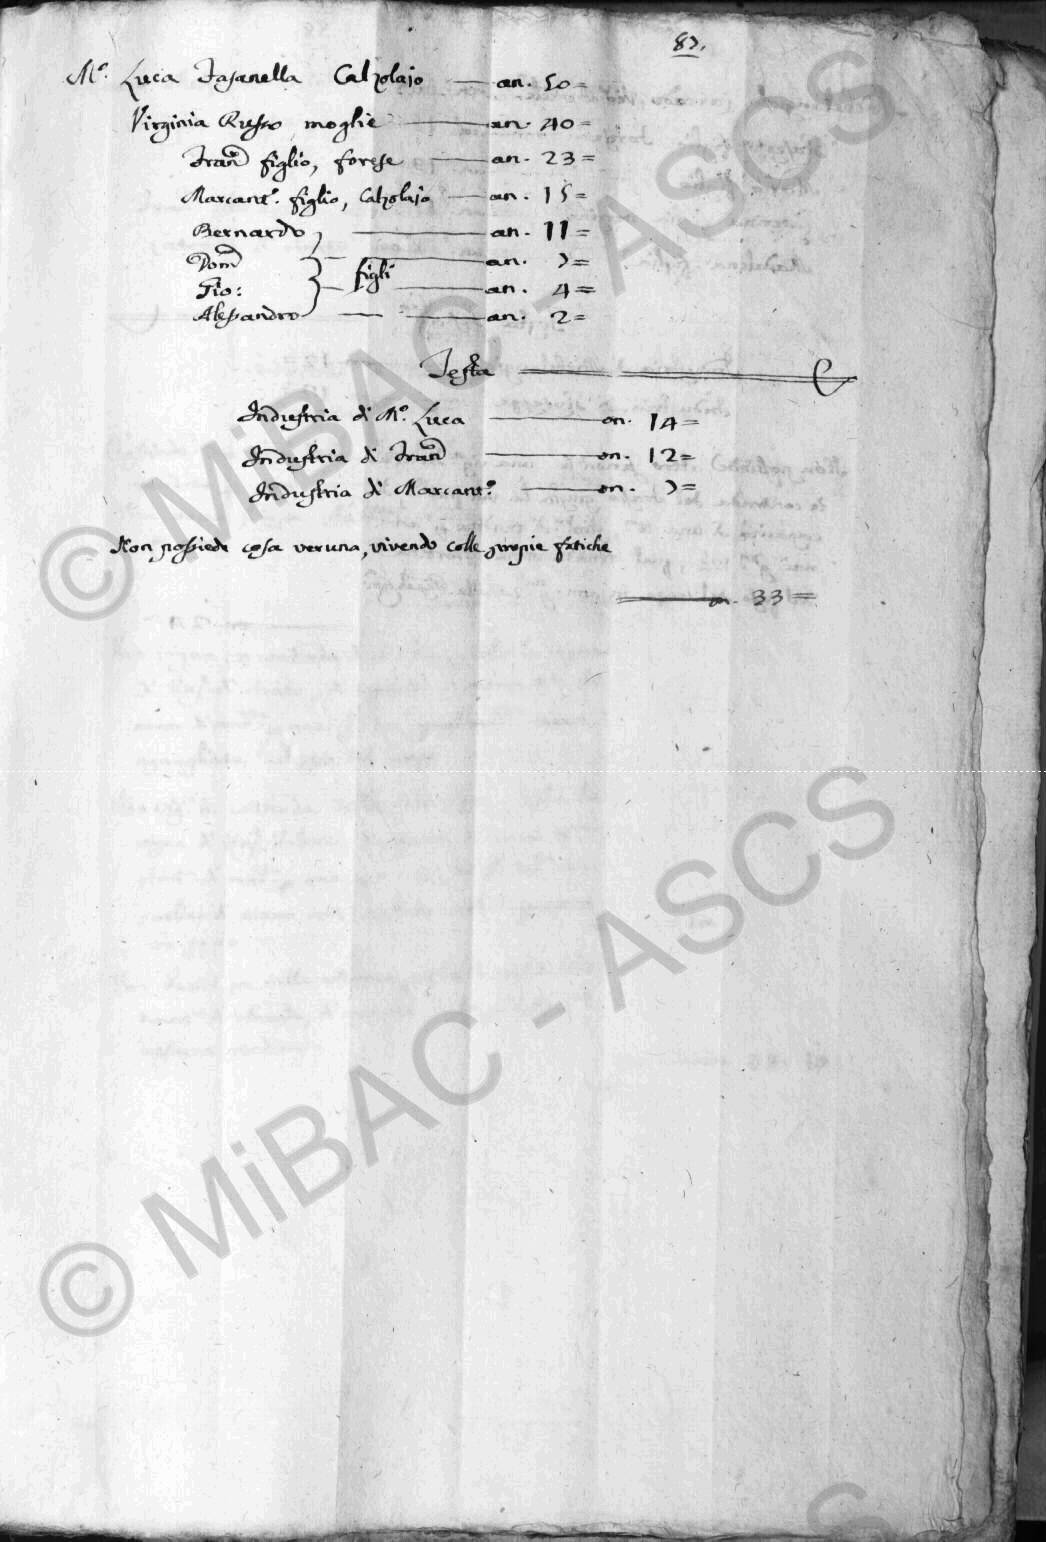 87.
M.º Luca Fasanella Calzolajo — an. 50=
Virginia Russo moglie — an. 40=
Fran.co figlio, forese — an. 23=
Marcant.º figlio, Calzolajo — an. 15=
Bernardo — an. 11=
Dom.co — an. 7=
Gio: figli — an. 4=
Alessandro — an. 2=
Testa
Industria di M.º Luca — on. 14=
Industria di Fran.co — on. 12=
Industria di Marcant.º — on. 7=
Non possiede cosa veruna, vivendo colle proprie fatiche
on. 33=
© MiBAC - ASCS
© MiBAC - ASCS